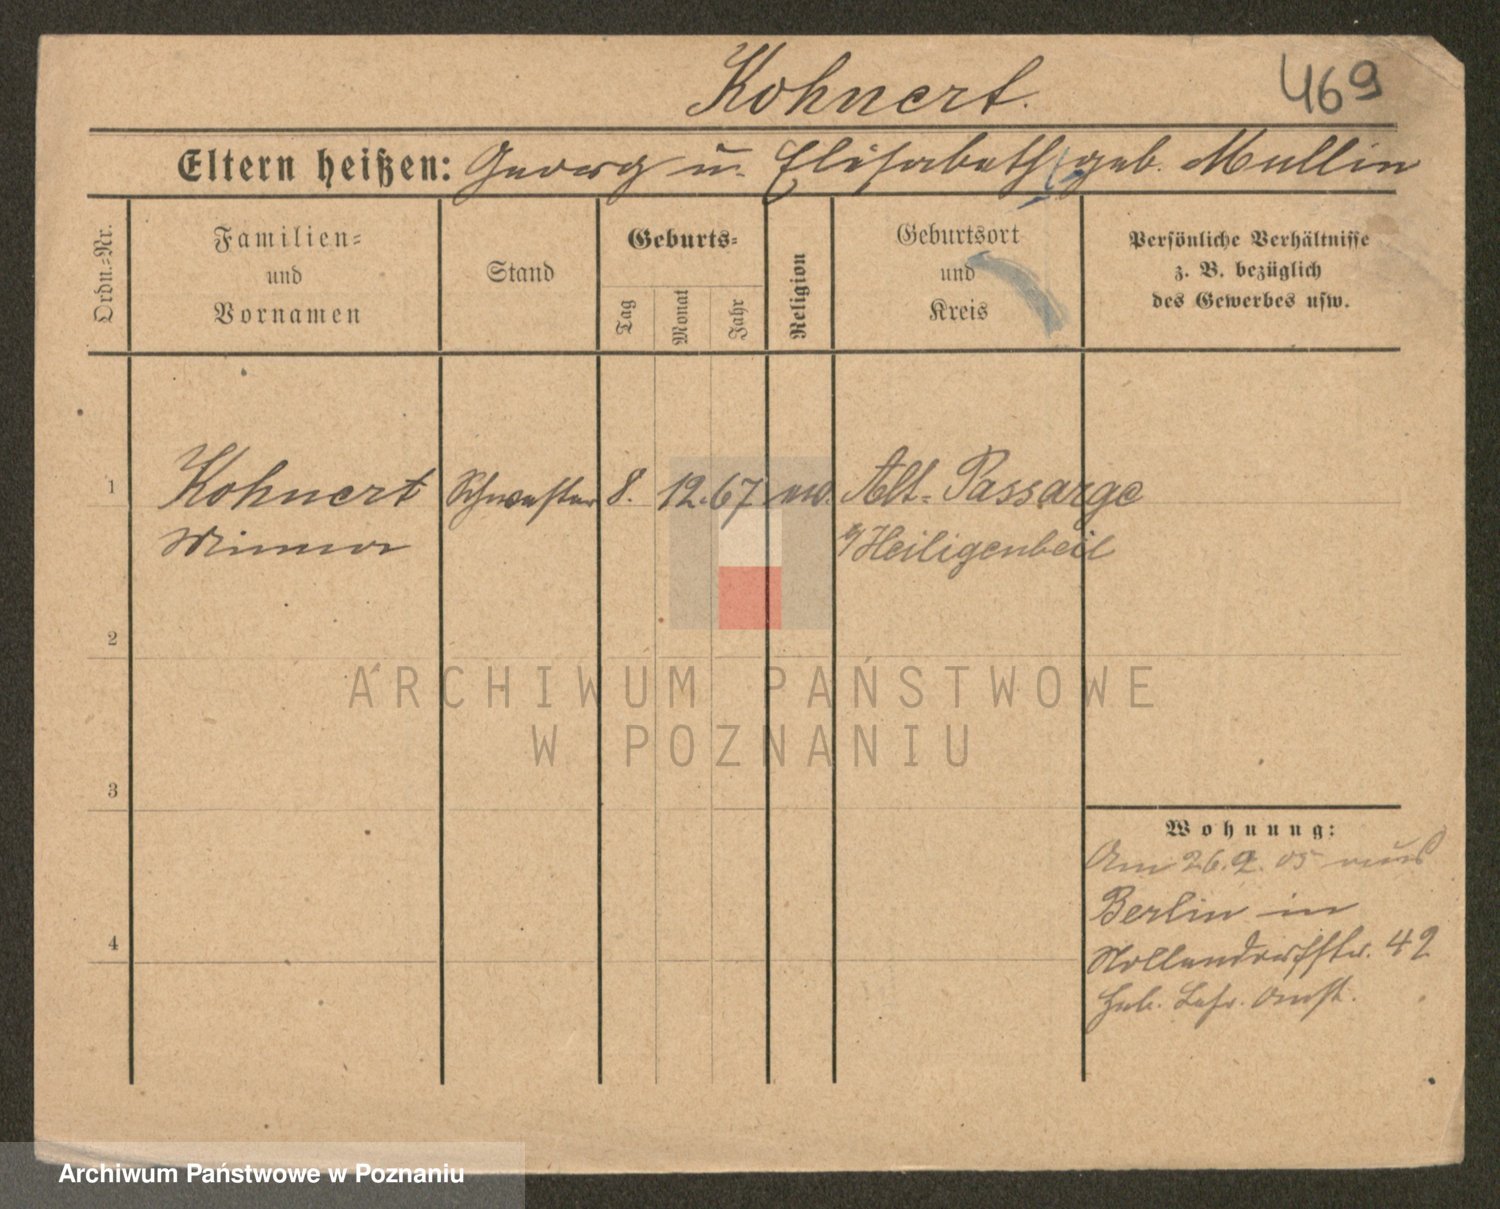 Kohnert.
469
Eltern heißen: Georg u. Elisabeth geb. Mullin
Ordn.-Nr.
Familien-
und
Vornamen
Stand
Geburts-
Tag
Monat
Jahr
Religion
Geburtsort
und
Kreis
Persönliche Verhältnisse
z. B. bezüglich
des Gewerbes usw.
1
Kohnert Schwester 8. 12. 67 ew. Alt-Passarge
Minna
Heiligenbeil
2
ARCHIWUM PAŃSTWOWE
W POZNANIU
3
Wohnung:
Am 26.9.05 aus
Berlin in
4
Nollendorffstr. 42
Heb. Lehr. Anst.
Archiwum Państwowe w Poznaniu